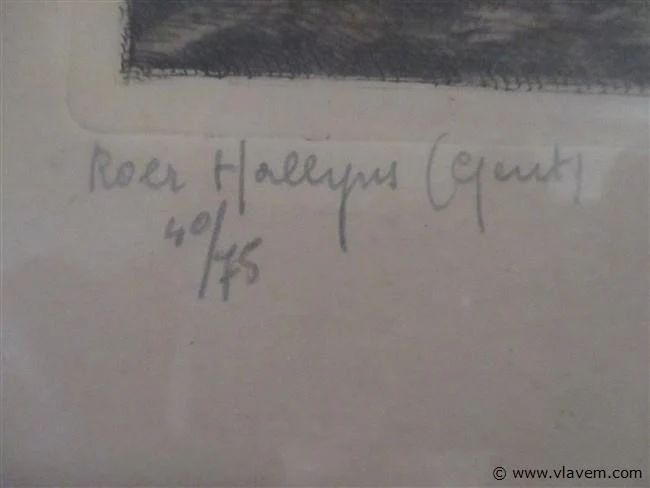 Roer Hallyns (Gent)
40/75
© www.vlavem.com